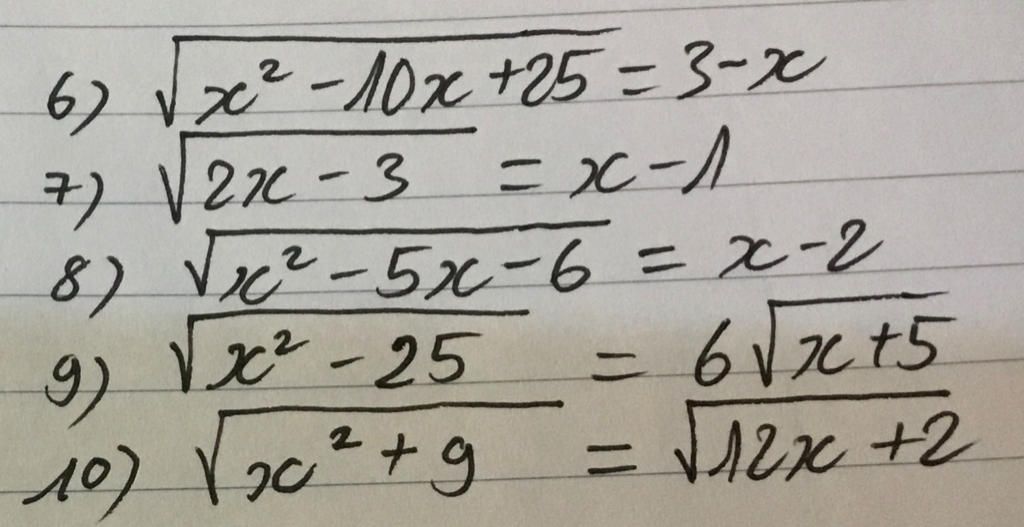 6) √(x² - 10x + 25) = 3 - x
7) √(2x - 3) = x - 1
8) √(x² - 5x - 6) = x - 2
9) √(x² - 25) = 6√(x + 5)
10) √(x² + 9) = √(12x + 2)